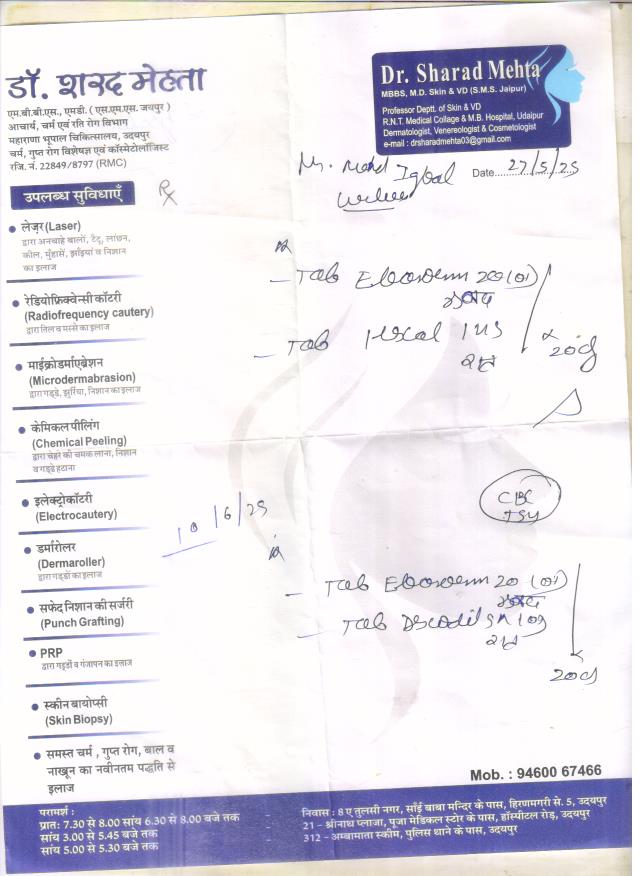 डॉ. शरद मेहता
एम.बी.बी.एस., एमडी. ( एस.एम.एस. जयपुर )
आचार्य, चर्म एवं रति रोग विभाग
महाराणा भूपाल चिकित्सालय, उदयपुर
चर्म, गुप्त रोग विशेषज्ञ एवं कॉस्मेटोलॉजिस्ट
रजि. नं. 22849/8797 (RMC)
Dr. Sharad Mehta
MBBS, M.D. Skin & VD (S.M.S. Jaipur)
Professor Deptt. of Skin & VD
R.N.T. Medical Collage & M.B. Hospital, Udaipur
Dermatologist, Venereologist & Cosmetologist
e-mail : drsharadmehta03@gmail.com
Mr. Mohd Iqbal
Date 27/5/25
उपलब्ध सुविधाएँ
Rx
लेज़र (Laser)
द्वारा अनचाहे बालों, टैटू, लांछन,
कील, मुँहासे, झाँइयां व निशान
का इलाज
रेडियोफ्रिक्वेन्सी कॉटरी
(Radiofrequency cautery)
द्वारा तिल व मस्से का इलाज
माईक्रोडर्माएब्रेशन
(Microdermabrasion)
द्वारा गड्डे, झुर्रियां, निशान का इलाज
केमिकल पीलिंग
(Chemical Peeling)
द्वारा चेहरे की चमक लाना, निशान
व गड्डे हटाना
इलेक्ट्रोकॉटरी
(Electrocautery)
डर्मारोलर
(Dermaroller)
द्वारा गड्डों का इलाज
सफेद निशान की सर्जरी
(Punch Grafting)
PRP
द्वारा गड्डों व गंजापन का इलाज
स्कीन बायोप्सी
(Skin Biopsy)
समस्त चर्म , गुप्त रोग, बाल व
नाखून का नवीनतम पद्धति से
इलाज
Tab 20 (01)
Tab
रात
20
CBC
TSH
10/6/25
Tab 20 (01)
Tab
रात
20
Mob. : 94600 67466
परामर्श :
प्रात: 7.30 से 8.00 सांय 6.30 से 8.00 बजे तक
सांय 3.00 से 5.45 बजे तक
सांय 5.00 से 5.30 बजे तक
निवास : 8 ए तुलसी नगर, साँई बाबा मन्दिर के पास, हिरणमगरी से. 5, उदयपुर
21 – श्रीनाथ प्लाजा, पूजा मेडिकल स्टोर के पास, हॉस्पीटल रोड़, उदयपुर
312 – अम्बामाता स्कीम, पुलिस थाने के पास, उदयपुर